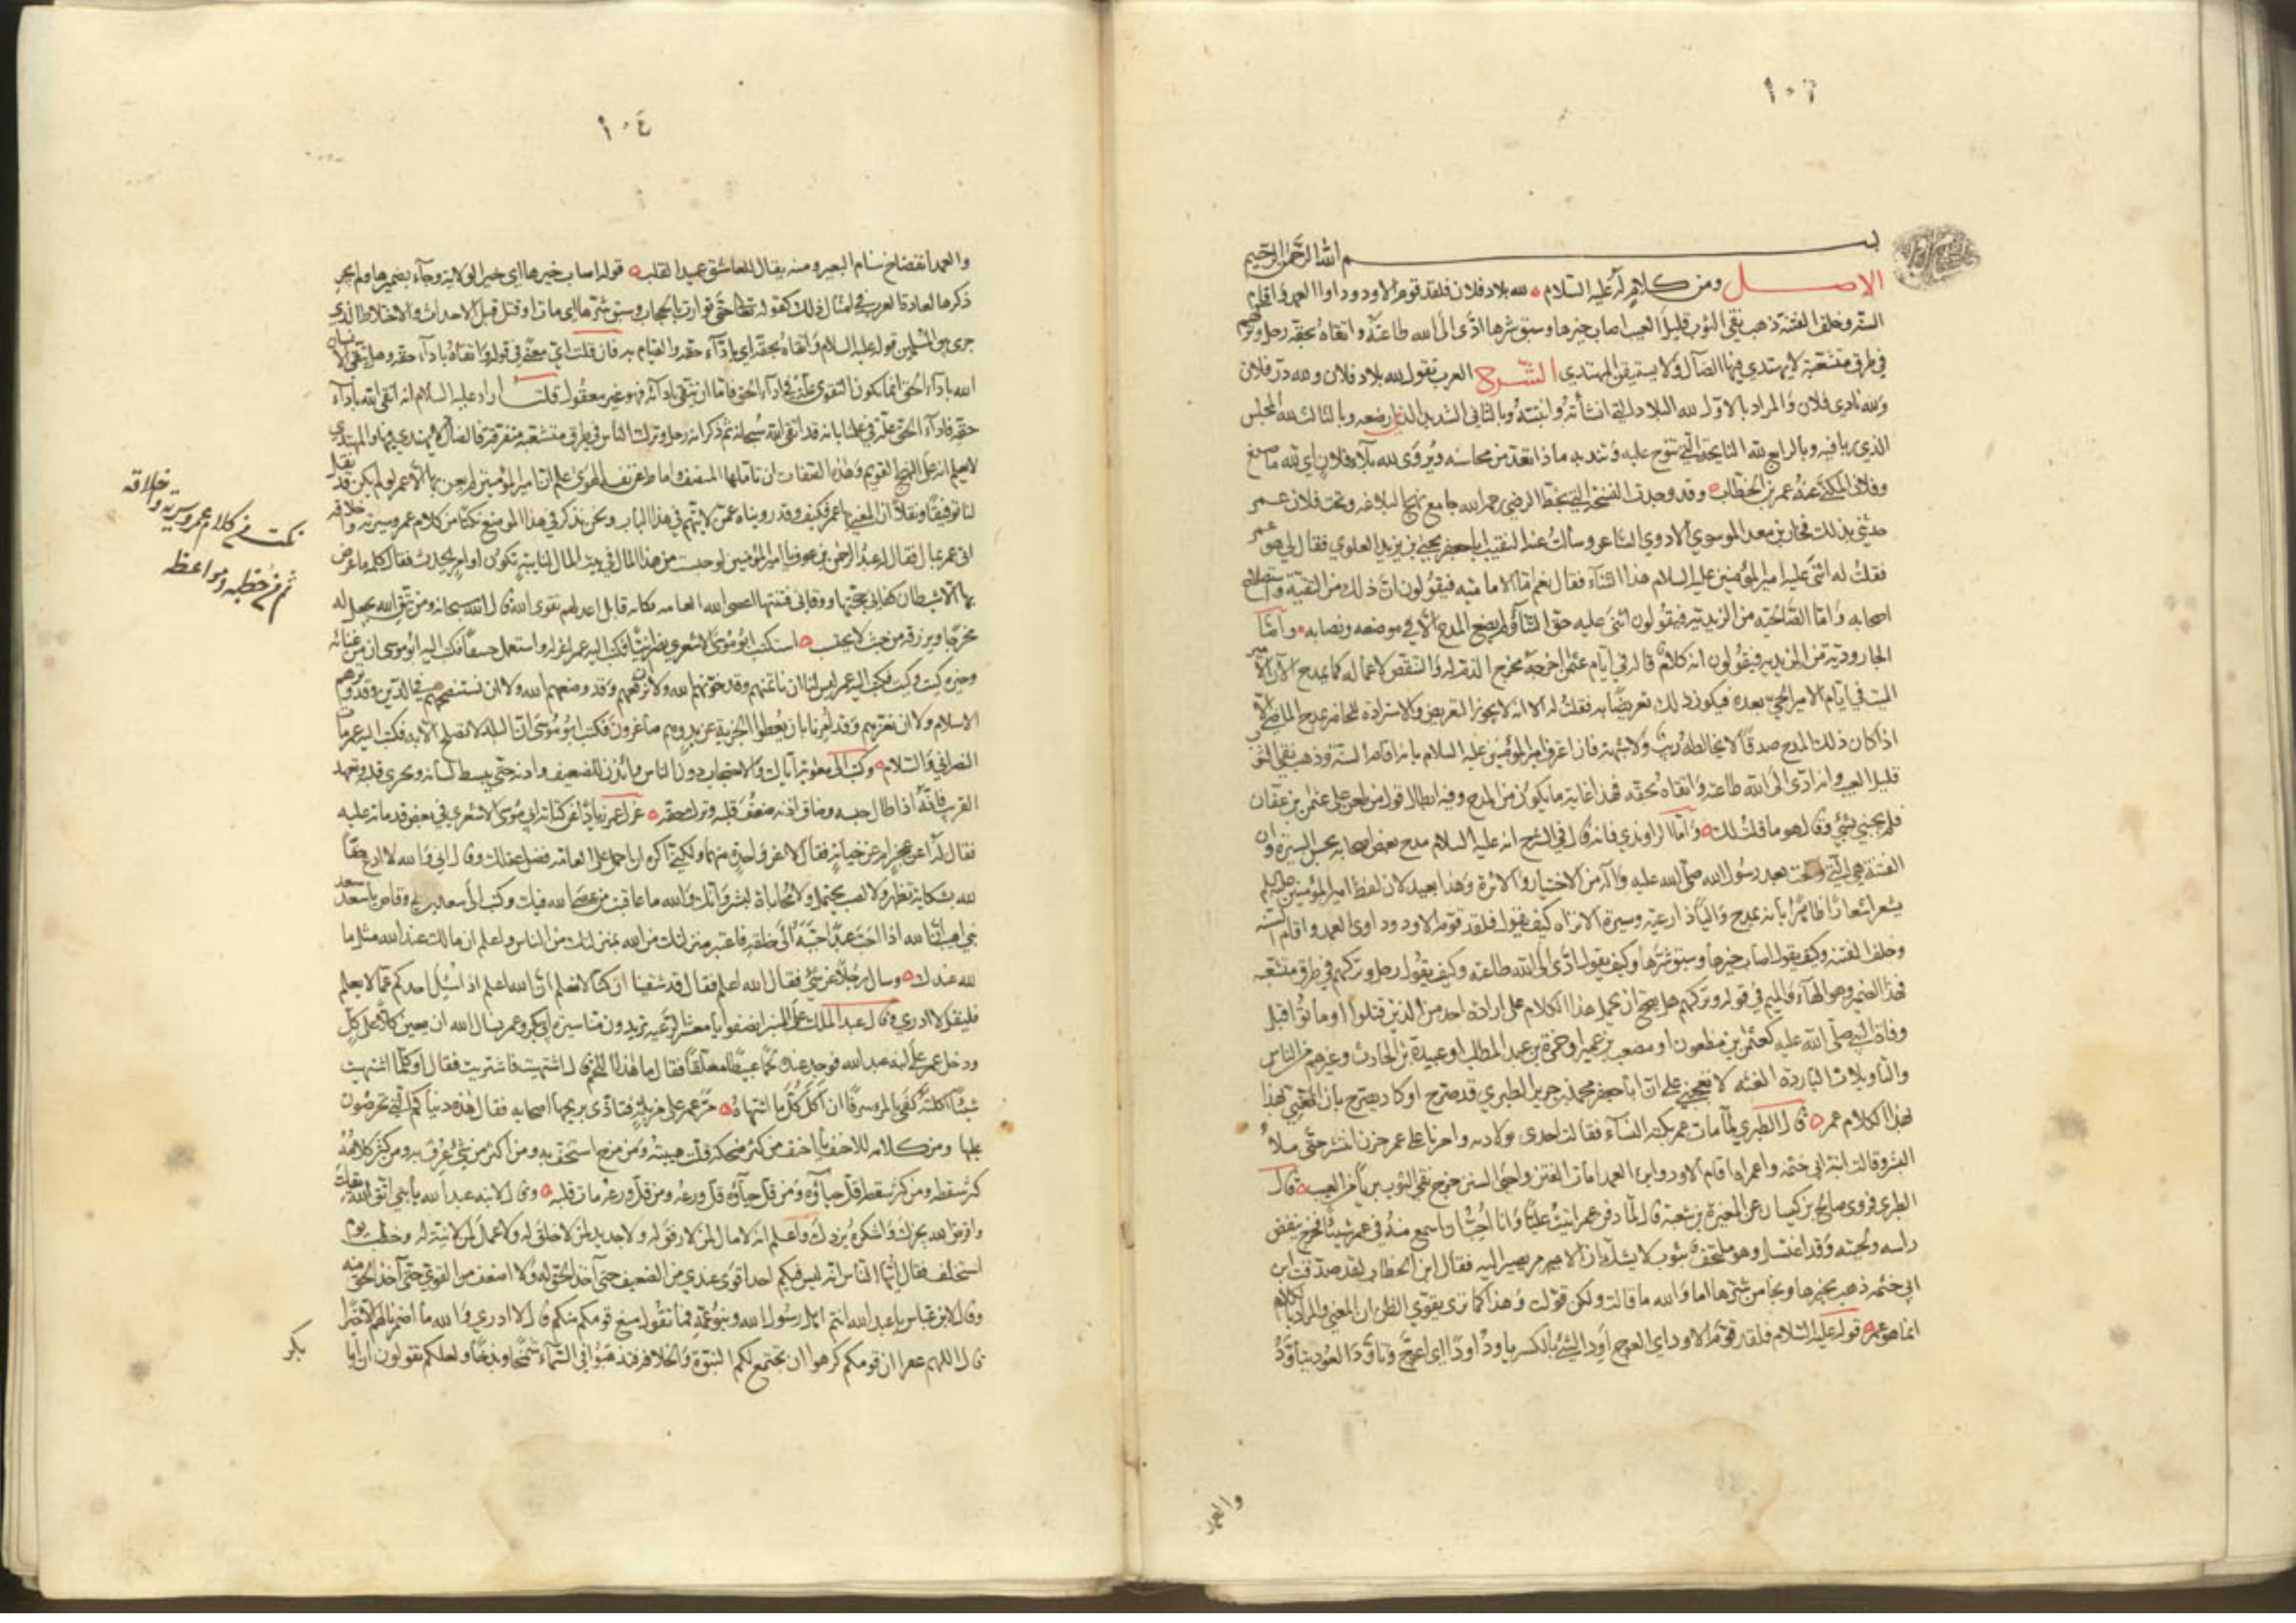 ١٠٣
بسم الله الرحمن الرحيم
الاصل ومن كلام له عليه السلام لله بلاد فلان فلقد قوم الاود وداوا العمد واقام
السنة وخلف الفتنة ذهب نقي الثوب قليل العيب اصاب خيرها وسبق شرها ادى الى الله طاعته واتقاه بحقه رحل وتركهم
في طرق متشعبة لا يهتدي فيها الضال ولا يستيقن المهتدي الشرح العرب تقول لله بلاد فلان ولله در فلان
ولله نادي فلان والمراد بالاول لله البلاد التي انشأته وانبتته وبالثاني الثدي الذي ارضعه وبالثالث لله المجلس
الذي ربي فيه وبالرابع لله النايحة التي تنوح عليه وتندبه ماذا تعد من محاسنه ويروى لله بلاء فلان اي لله ما صنع
وفلان المكني عنه عمر بن الخطاب وقد وجدت النسخة التي بخط الرضي رحمه الله جامع نهج البلاغه وتحت فلان عمر
حدثني بذلك فخار بن معد الموسوي الاودي الشاعر وسألت عنه النقيب ابا جعفر يحيى بن يزيد العلوي فقال لي هو عمر
فقلت له اثنى عليه امير المؤمنين عليه السلام هذا الثناء فقال نعم اما الاماميه فيقولون ان ذلك من التقية واستصلاح
اصحابه واما الصالحيه من الزيديه فيقولون اثنى عليه حق الثناء ولم يضع المدح الا في موضعه ونصابه واما
الجاروديه من الزيديه فيقولون انه كلام قاله في ايام عثمن اخرجه مخرج الذم له والتنقص لاعماله كما يمدح الان الامير
الميت في ايام الامير الحي بعده فيكون ذلك تعريضا به فقلت له الا انه لا يجوز التعريض والاستزادة للحاضر بمدح الماضي الا
اذا كان ذلك المدح صدقا لا يخالطه ريب ولا شبهة فاذا اعترف امير المؤمنين عليه السلام بانه اقام السنه وذهب نقي الثوب
قليل العيب وانه ادى الى الله طاعته واتقاه بحقه فهذا غاية ما يكون من المدح وفيه ابطال قول من طعن على عثمن بن عفان
فلم يجبني بشيء وقال هو ما قلت لك واما الراوندي فانه قال في الشرح انه عليه السلام مدح بعض اصحابه بحسن السيرة وان
الفتنة هي التي وقعت بعد رسول الله صلى الله عليه وآله من الاختيار والاثرة وهذا بعيد لان لفظ امير المؤمنين عليه السلام
يشعر اشعارا ظاهرا بانه يمدح واليا ذا رعية وسيرة الا تراه كيف يقول فلقد قوم الاود وداوى العمد واقام السنه
وخلف الفتنه وكيف يقول اصاب خيرها وسبق شرها وكيف يقول ادى الى الله طاعته وكيف يقول رحل وتركهم في طرق متشعبه
فهذا الضمير وهو الهاء والميم في قوله وتركهم هل يصح ان يحمل هذا الكلام على ارادة احد من الذين قتلوا او ماتوا قبل
وفاة النبي صلى الله عليه كعثمن بن مظعون او مصعب بن عمير او حمزة بن عبد المطلب او عبيدة بن الحارث وغيرهم من الناس
والتأويلات الباردة الغثه لا تعجبني على ان ابا جعفر محمد بن جرير الطبري قد صرح او كاد يصرح بان المعني بهذا
لهذا الكلام عمر قال الطبري لما مات عمر بكته النساء فقالت احدى نوادبه واحزنا على عمر حزن انتشر حتى ملأ
البشر وقالت ابنة ابي حثمه واعمراه اقام الاود وابرء العمد امات الفتن واحيى السنن خرج نقي الثوب بريا من العيب قال
الطبري فروى صالح بن كيسان عن المغيرة بن شعبة قال لما دفن عمر اتيت عليا وانا احب ان اسمع منه في عمر شيئا فخرج ينفض
راسه ولحيته وقد اغتسل وهو ملتحف بثوب لا يشك ان الامر يصير اليه فقال ابن الخطاب لقد صدقت ابنة
ابي حثمه ذهب بخيرها ونجا من شرها اما والله ما قالت ولكن قولت وهذا كما ترى يقوي الظن ان المعني والمراد بالكلام
انما هو عمر قوله عليه السلام فلقد قوم الاود اي العوج اود الشئ بالكسر ياود اودا اي اعوج وتاود العود يتاود
والعمد
١٠٤
والعمد انفضاخ سنام البعير ومنه يقال للعاشق عميد القلب قوله اصاب خيرها اي خير الولاية وجاء بضميرها ولم يجر
ذكرها لعادة العرب في امثال ذلك كقوله تعالى حتى توارت بالحجاب وسبق شرها اي مات او قتل قبل الاحداث والاختلاط الذي
جرى بين المسلمين قوله عليه السلام واتقاه بحقه اي باداء حقه والقيام به فان قلت اي معنى في قوله واتقاه باداء حقه وهل يتقى الانسان
الله باداء الحق انما يكون التقوى علة في اداء الحق فاما ان يتقى بادائه فهو غير معقول قلت اراد عليه السلام انه اتقى الله باداء
حقه فاداء الحق علة في علمنا بانه قد اتقى الله سبحانه ثم ذكر انه رحل وترك الناس في طرق متشعبه متفرقة فالضال لا يهتدي فيها والمهتدي
لا يعلم انه على النهج القويم وهذه الصفات ان تاملها المنصف واماط عن نفسه الهوى علم ان امير المؤمنين لم يعن بها الا عمر لو لم يكن قد نقل
لنا توقيفا ونقلا ان المعني بها عمر فكيف وقد رويناه عمن لا يتهم في هذا الباب ونحن نذكر في هذا الموضع نكتا من كلام عمر وسيرته واخلاقه
اتى عمر بمال فقال له عبد الرحمن بن عوف يا امير المؤمنين لو حبست من هذا المال في بيت المال لنايبة تكون او امر يحدث فقال كلمة ما عرض
بها الا شيطان كفاني حجتها ووقاني فتنتها اعصى الله العام مخافة قابل اعد لهم تقوى الله قال الله سبحانه ومن يتق الله يجعل له
مخرجا ويرزقه من حيث لا يحتسب استكتب ابو موسى الاشعري نصرانيا فكتب اليه عمر اعزله واستعمل حنيفا فكتب اليه ابو موسى ان من غنائه
وخيره كيت وكيت فكتب اليه عمر ليس لنا ان نأتمنهم وقد خونهم الله ولا نرفعهم وقد وضعهم الله ولا ان نستنصحهم في الدين وقد وترهم
الاسلام ولا ان نعزهم وقد امرنا بان يعطوا الجزية عن يد وهم صاغرون فكتب ابو موسى ان البلد لا تصلح الا به فكتب اليه عمر مات
النصراني والسلام وكتب الى معوية اياك والاحتجاب دون الناس وائذن للضعيف وادنه حتى يبسط لسانه ويجري قلبه وتعهد
الغريب فانه اذا طال حبسه وضاق اذنه ضعف قلبه وترك حقه عزل عمر زيادا عن كتابة ابي موسى الاشعري في بعض قدماته عليه
فقال له عن عجز ام عن خيانة فقال لا عن واحدة منهما ولكني اكره ان احمل على العامة فضل عقلك وقال اني والله لا ادع حقا
لله بشكاية تظهر ولا لضب يحتمل ولا محاباة لبشر وانك والله ما عاقبت من عصى الله فيك وكتب الى سعد بن ابي وقاص يا سعد سعد
بني اهيب ان الله اذا احب عبدا حببه الى خلقه فاعتبر منزلتك من الله بمنزلتك من الناس واعلم ان مالك عند الله مثل ما
لله عندك وسال رجلا عن شئ فقال الله اعلم فقال قد شقينا ان كنا لا نعلم ان الله اعلم اذا سئل احدكم عما لا يعلم
فليقل لا ادري وقال عبد الملك على المنبر انصفونا يا معشر الرعيه تريدون منا سيرة ابي بكر وعمر نسال الله ان يعين كلا على كل
ودخل عمر على ابنه عبد الله فوجد عنده لحما عبيطا معلقا فقال ما هذا اللحم قال اشتهيت فاشتريت فقال او كلما اشتهيت
شيئا اكلته كفى بالمرء سرفا ان اكل كل ما اشتهاه مر عمر على مزبلة فتاذى بريحها اصحابه فقال هذه دنياكم التي تحرصون
عليها ومن كلامه للاحنف يا احنف من كثر ضحكه قلت هيبته ومن مزح استخف به ومن اكثر من شئ عرف به ومن كثر كلامه
كثر سقطه ومن كثر سقطه قل حياؤه ومن قل حياؤه قل ورعه ومن قل ورعه مات قلبه وقال لابنه عبد الله يا بني اتق الله يقك
واقرض الله يجزك واشكره يزدك واعلم انه لا مال لمن لا رفق له ولا جديد لمن لا خلق له ولا عمل لمن لا نية له وخطب يوم
استخلف فقال ايها الناس انه ليس فيكم احد اقوى عندي من الضعيف حتى آخذ الحق له ولا اضعف من القوي حتى آخذ الحق منه
وقال لابن عباس يا عبد الله انتم اهل رسول الله وبنو عمه فما تقول منع قومكم منكم قال لا ادري والله ما اضمرنا لهم الا خيرا
قال اللهم غفرا ان قومكم كرهوا ان يجتمع لكم النبوة والخلافة فتذهبوا في السماء شمخا وبذخا ولعلكم تقولون ان ابا
بكر
نكت من كلام عمر وسيرته واخلاقه
ثم من خطبه ومواعظه